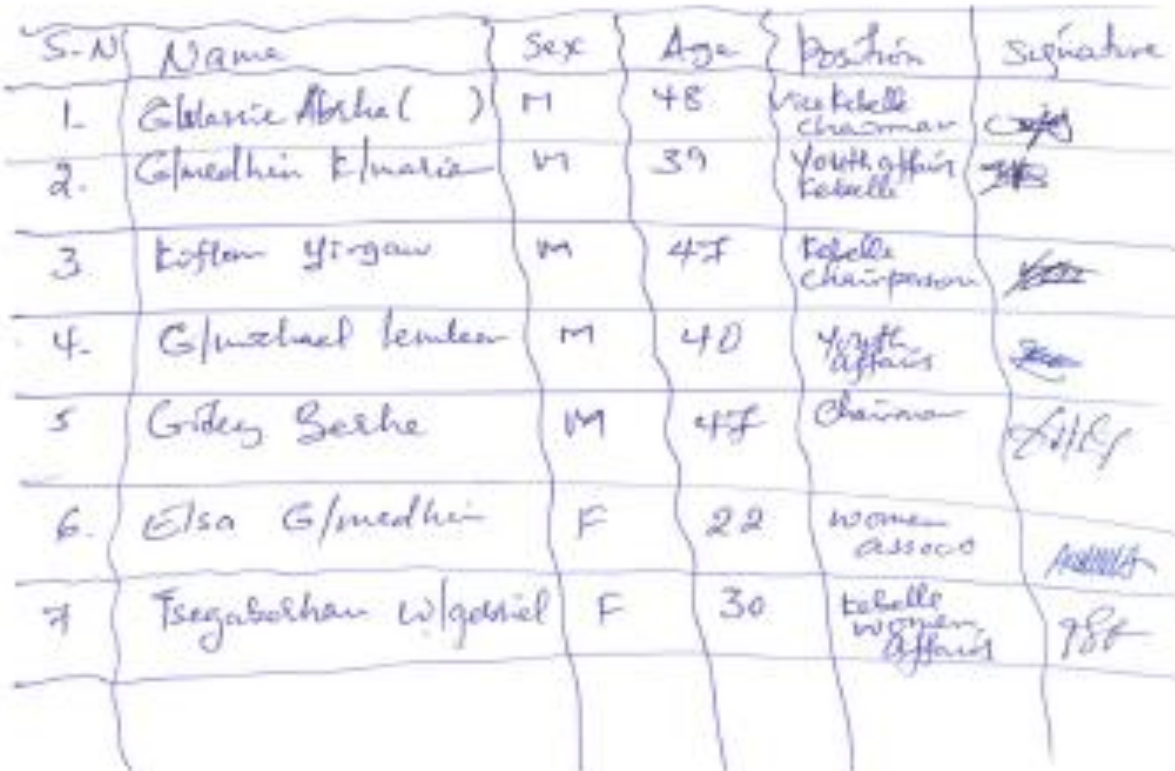 S.N Name Sex Age Position Signature
1. Abrha ( ) M 48 Vice Kebelle chairman
2. G/medhin K/maria M 39 Youth affair Kebelle
3 Koflom Yirgaw M 47 Kebelle Chairperson
4. G/michael M 40 Youth affairs
5 Gidey Berhe M 47 Chairman
6. Elsa G/medhin F 22 women assoco
7 Tsegaberhan w/gabriel F 30 Kebelle women affairs